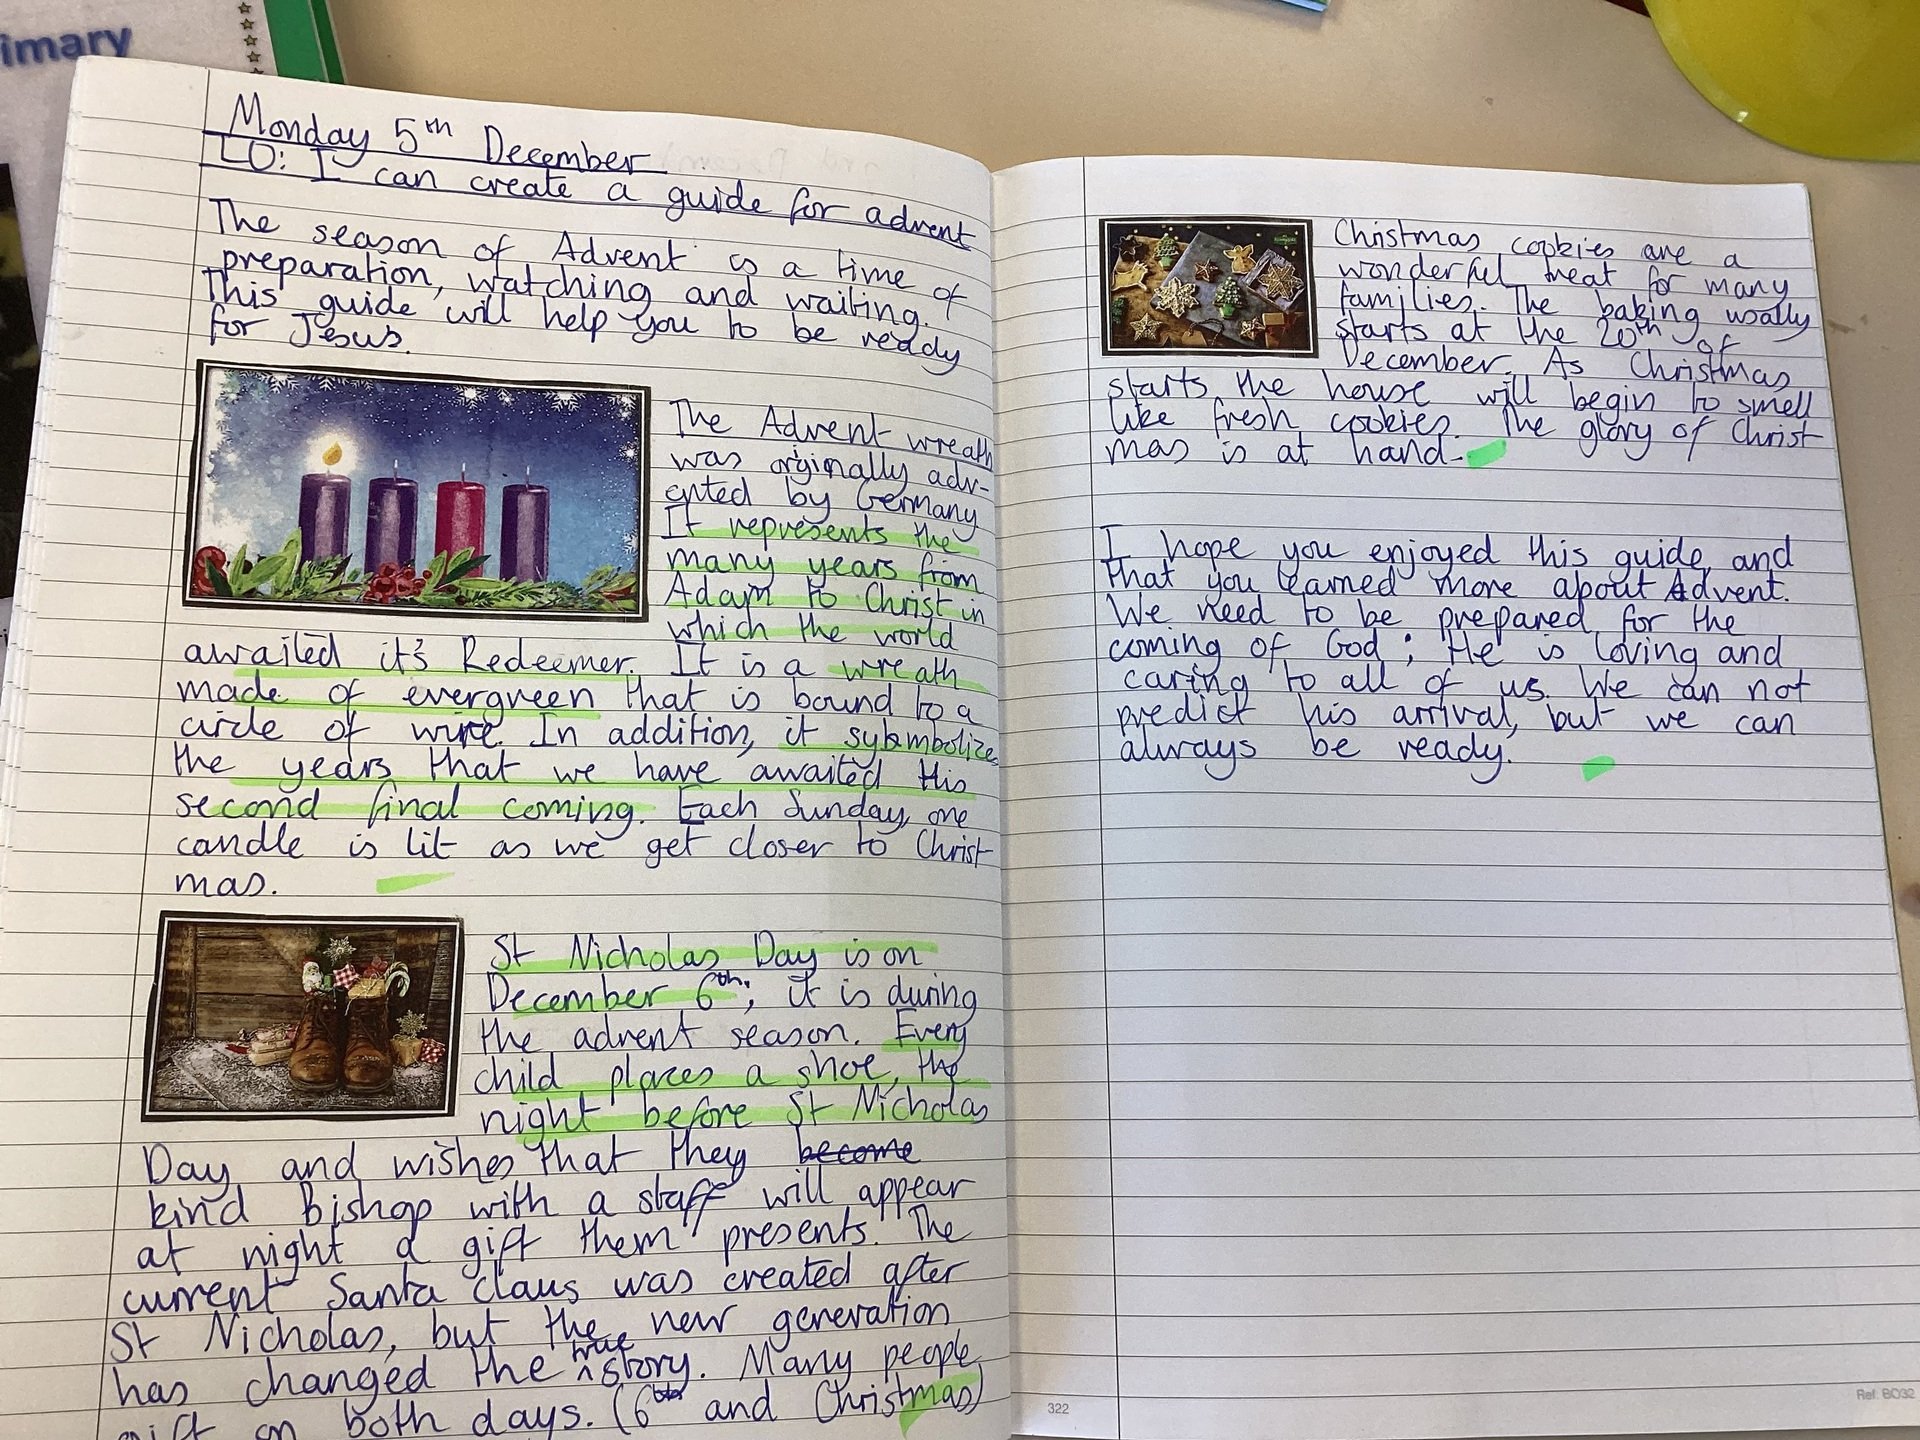 imary
Monday 5th December
LO: I can create a guide for advent
The season of Advent is a time of
preparation, watching and waiting.
This guide will help you to be ready
for Jesus.
The Advent wreath
was orginally adv-
ented by Germany
It represents the
many years from
Adam to Christ in
which the world
awaited it's Redeemer. It is a wreath
made of evergreen that is bound to a
circle of wire. In addition, it symbolizes
the years that we have awaited His
second final coming. Each Sunday, one
candle is lit as we get closer to Christ
mas.
St Nicholas Day is on
December 6th; it is during
the advent season. Every
child places a shoe, the
night before St Nicholas
Day and wishes that they become
kind Bishop with a staff will appear
at night a gift them presents. The
current Santa Claus was created after
St Nicholas, but the new generation
has changed the true story. Many people
gift on both days. (6th and Christmas)
Christmas cookies are a
wonderful treat for many
families. The baking usally
starts at the 20th of
December. As Christmas
starts the house will begin to smell
like fresh cookies. The glory of Christ
mas is at hand.
I hope you enjoyed this guide, and
that you learned more about Advent.
We need to be prepared for the
coming of God; He is loving and
caring to all of us. We can not
predict his arrival, but we can
always be ready.
322
Ref. BO32